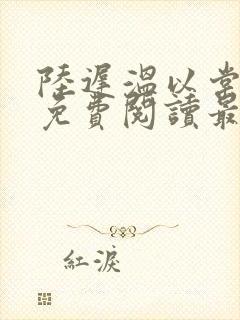 陸遲溫以棠
免費閱讀最
紅淚